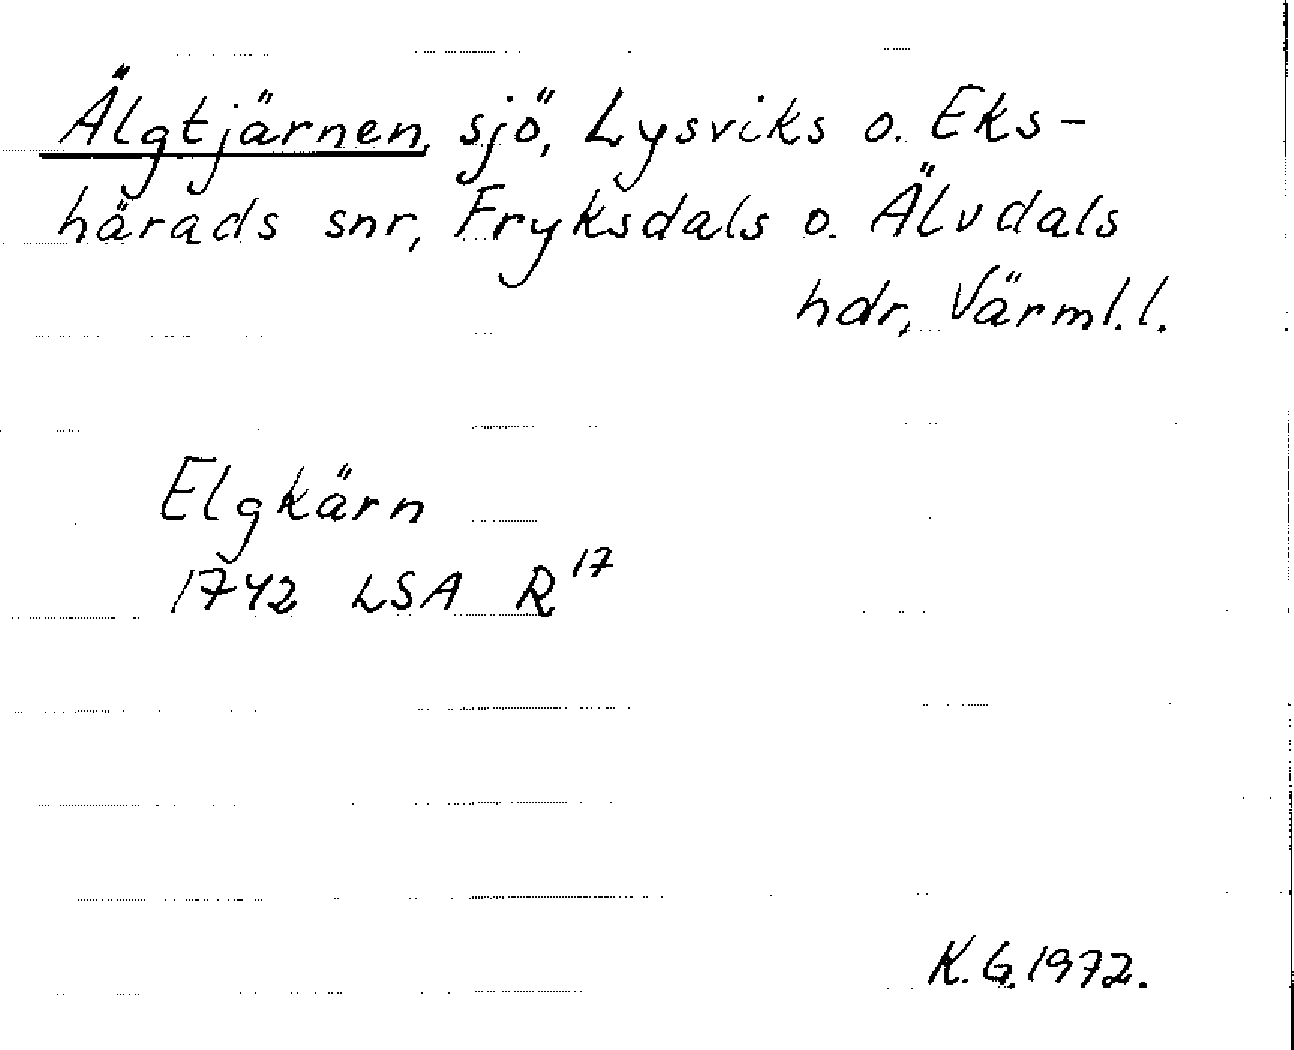 Älgtjärnen, sjö, Lysviks o. Eks-
härads snr, Fryksdals o. Älvdals
hdr, Värml.l.
Elgkärn
1742 LSA R 17
K.G.1972.